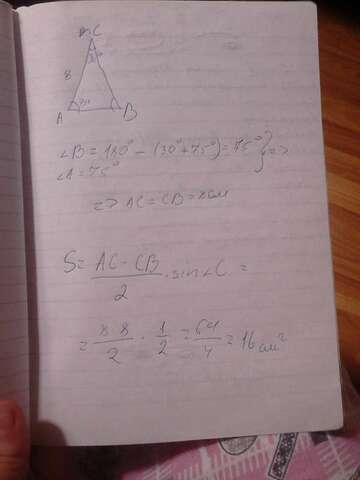 C
30°
8
75°
A
B
∠B = 180° - (30° + 75°) = 75°
∠A = 75°
} =>
=> AC = CB = 8 см
S = AC · CB / 2 · sin ∠C =
= 8 8 / 2 · 1 / 2 = 64 / 4 = 16 см²